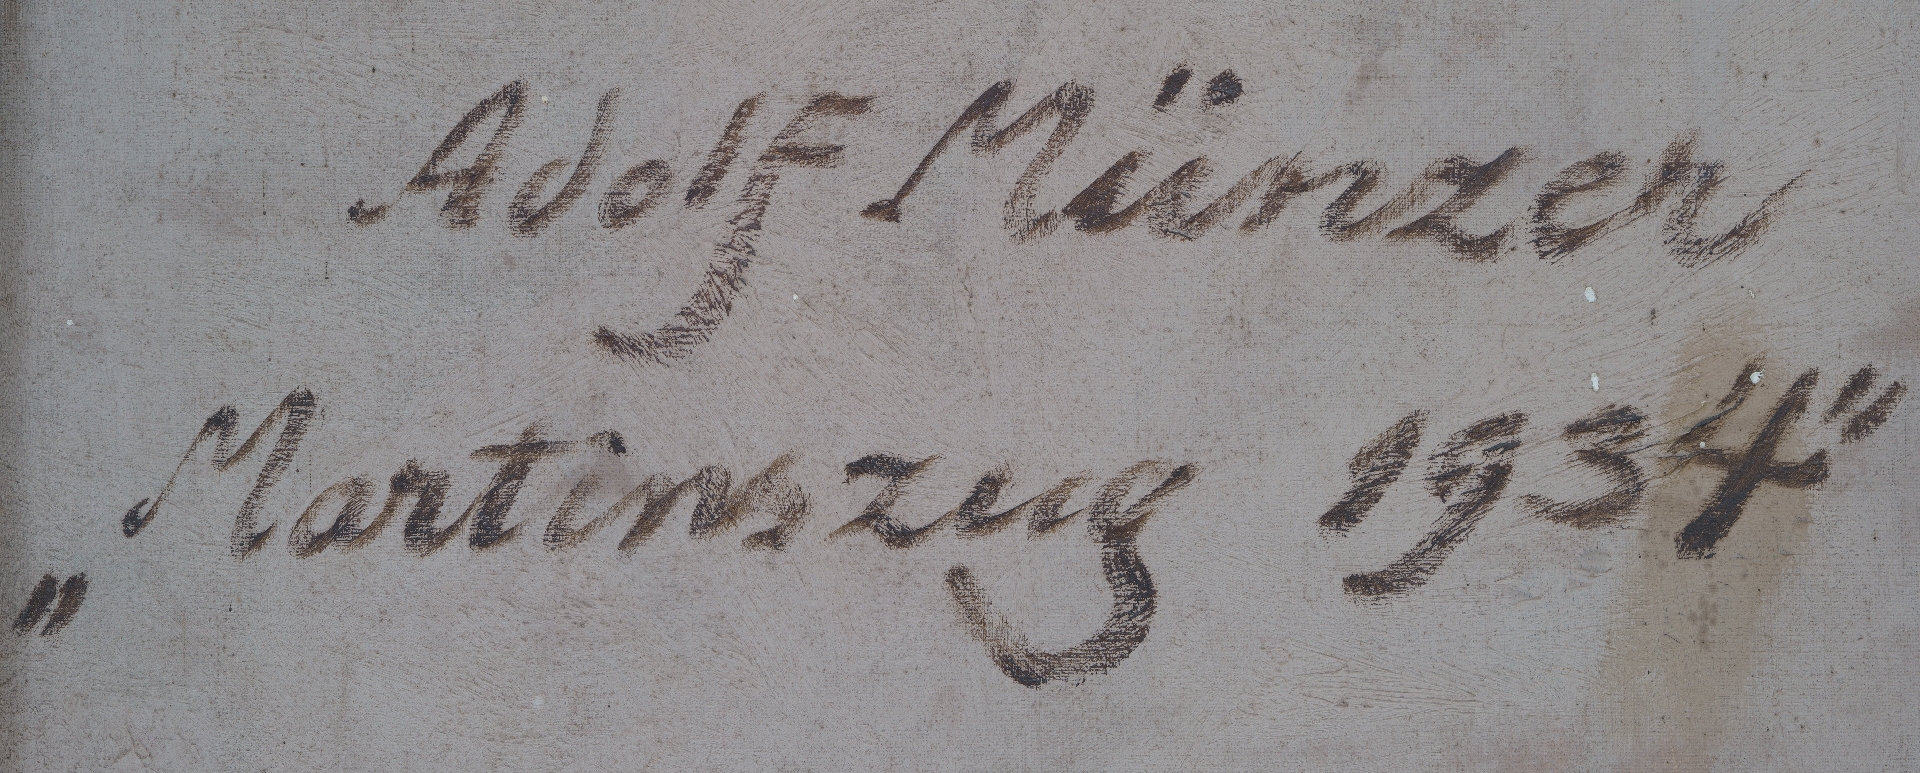 Adolf Münzer
„Martinszug 1934"